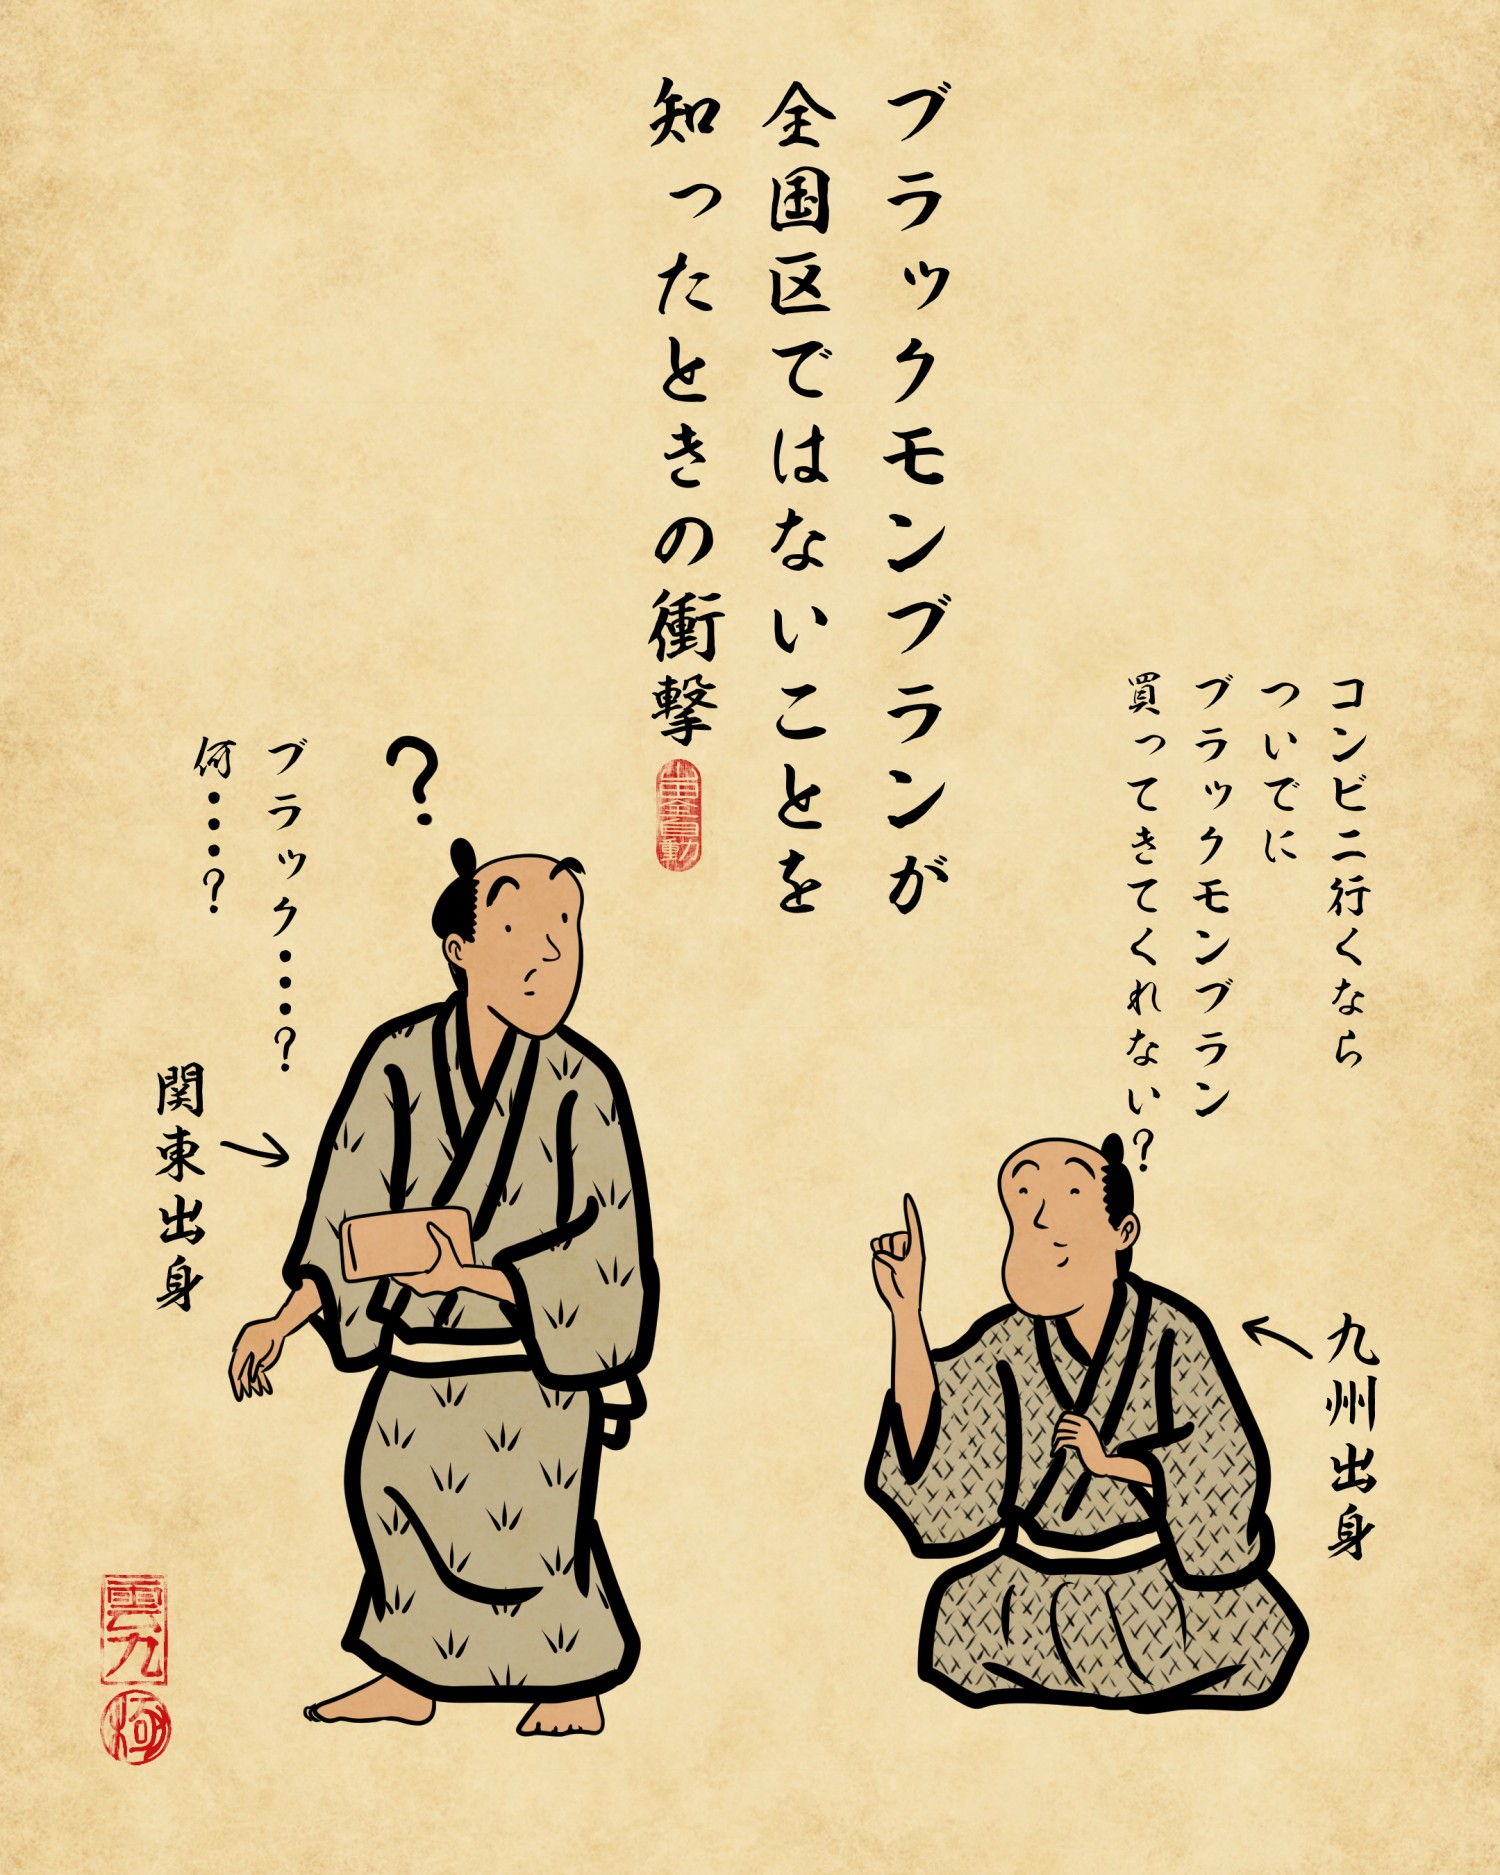 ブラックモンブランが
全国区ではないことを
知ったときの衝撃
コンビニ行くなら
ついでに
ブラックモンブラン
買ってきてくれない?
九州出身
ブラック・・・?
何・・・?
関東出身
雲九
極